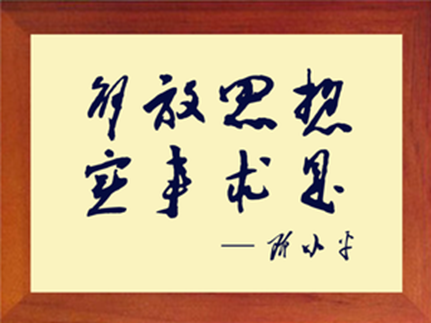 解放思想
实事求是
— 邓小平